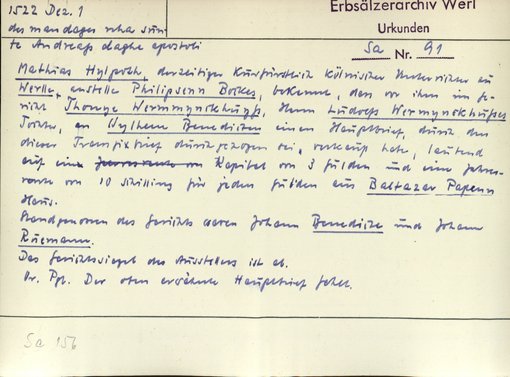 1522 Dez. 1
des mandages nha sun-
te Andreaß daghe apostoli
Erbsälzerarchiv Werl
Urkunden
Sa Nr. 91
Mathias Hylpolh, derzeitiger Kurfürstlich kölnischer Unterrichter zu
Werlle, anstelle Philipsenn Bockes, bekennt, dass vor ihm im Ge-
richt Thonye Wermmynckhuyß, Herm Ludolffs Wermynckhußes
Tochter, an Wylhem Benedicten einen Hauptbrief, durch den
dieser Transfixbrief durchgezogen sei, verkauft habe, lautend
auf ein Kapital von 3 Gulden und eine Jahres-
rente von 10 Schilling für jeden Gulden aus Baltazar Papenn
Haus.
Standgenossen des Gerichts waren Johann Benedicte und Johann
Ruemann.
Das Gerichtssiegel des Ausstellers ist ab.
Or. Pgt. Der oben erwähnte Hauptbrief fehlt.
Sa 156